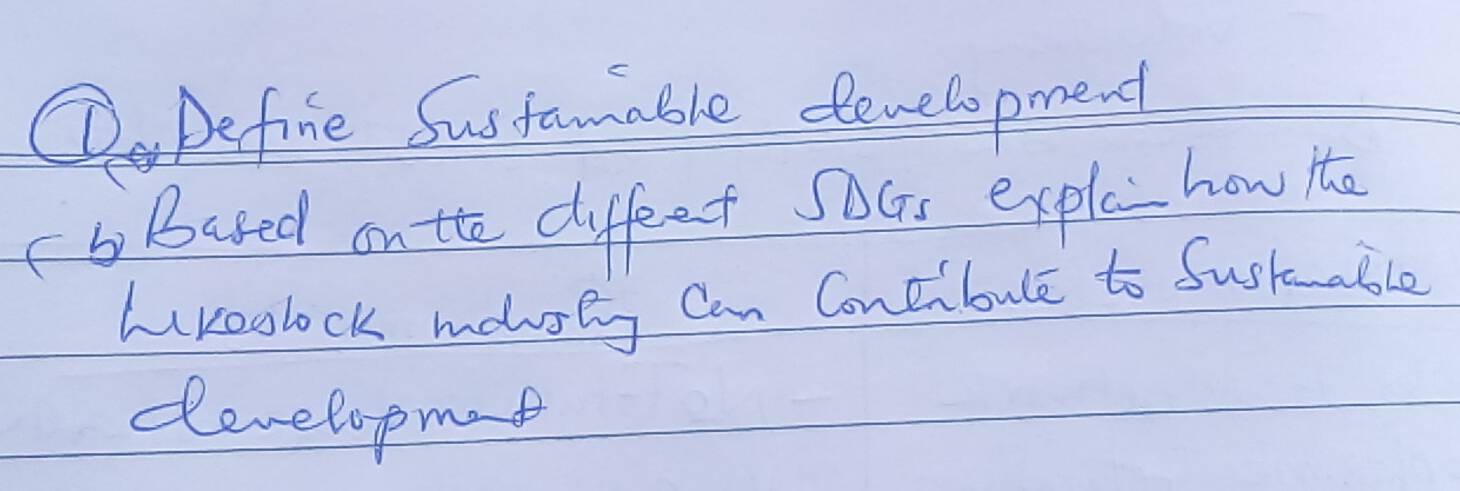 ① (a) Define Sustainable development
(b) Based on the different SDGs explain how the
Livestock industry Can Contribute to Sustainable
development